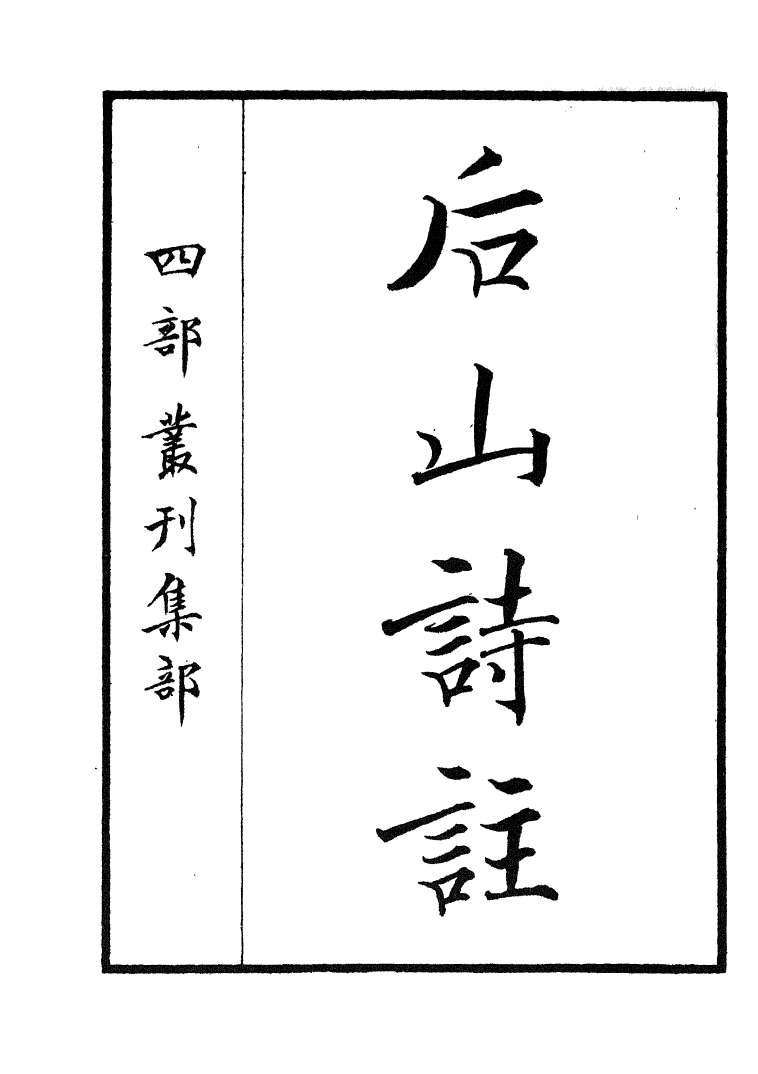 后山詩註
四部叢刊集部